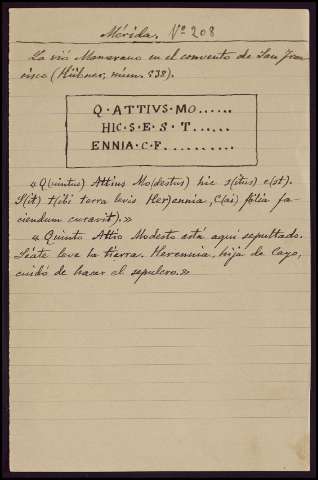 Mérida. Nº 208
La vió Monsravo en el convento de San Fran
cisco (Hübner, núm. 538).
Q·ATTIVS·MO......
HIC·S·E·S·T......
ENNIA·C·F..........
«Q(uintus) Attius Mo(destus) hic s(itus) e(st).
S(it) t(ibi terra levis Her)ennia, C(ai) f(ilia fa-
ciendum curavit).»
«Quinto Attio Modesto está aquí sepultado.
Séate leve la tierra. Herennia, hija de Cayo,
cuidó de hacer el sepulcro.»